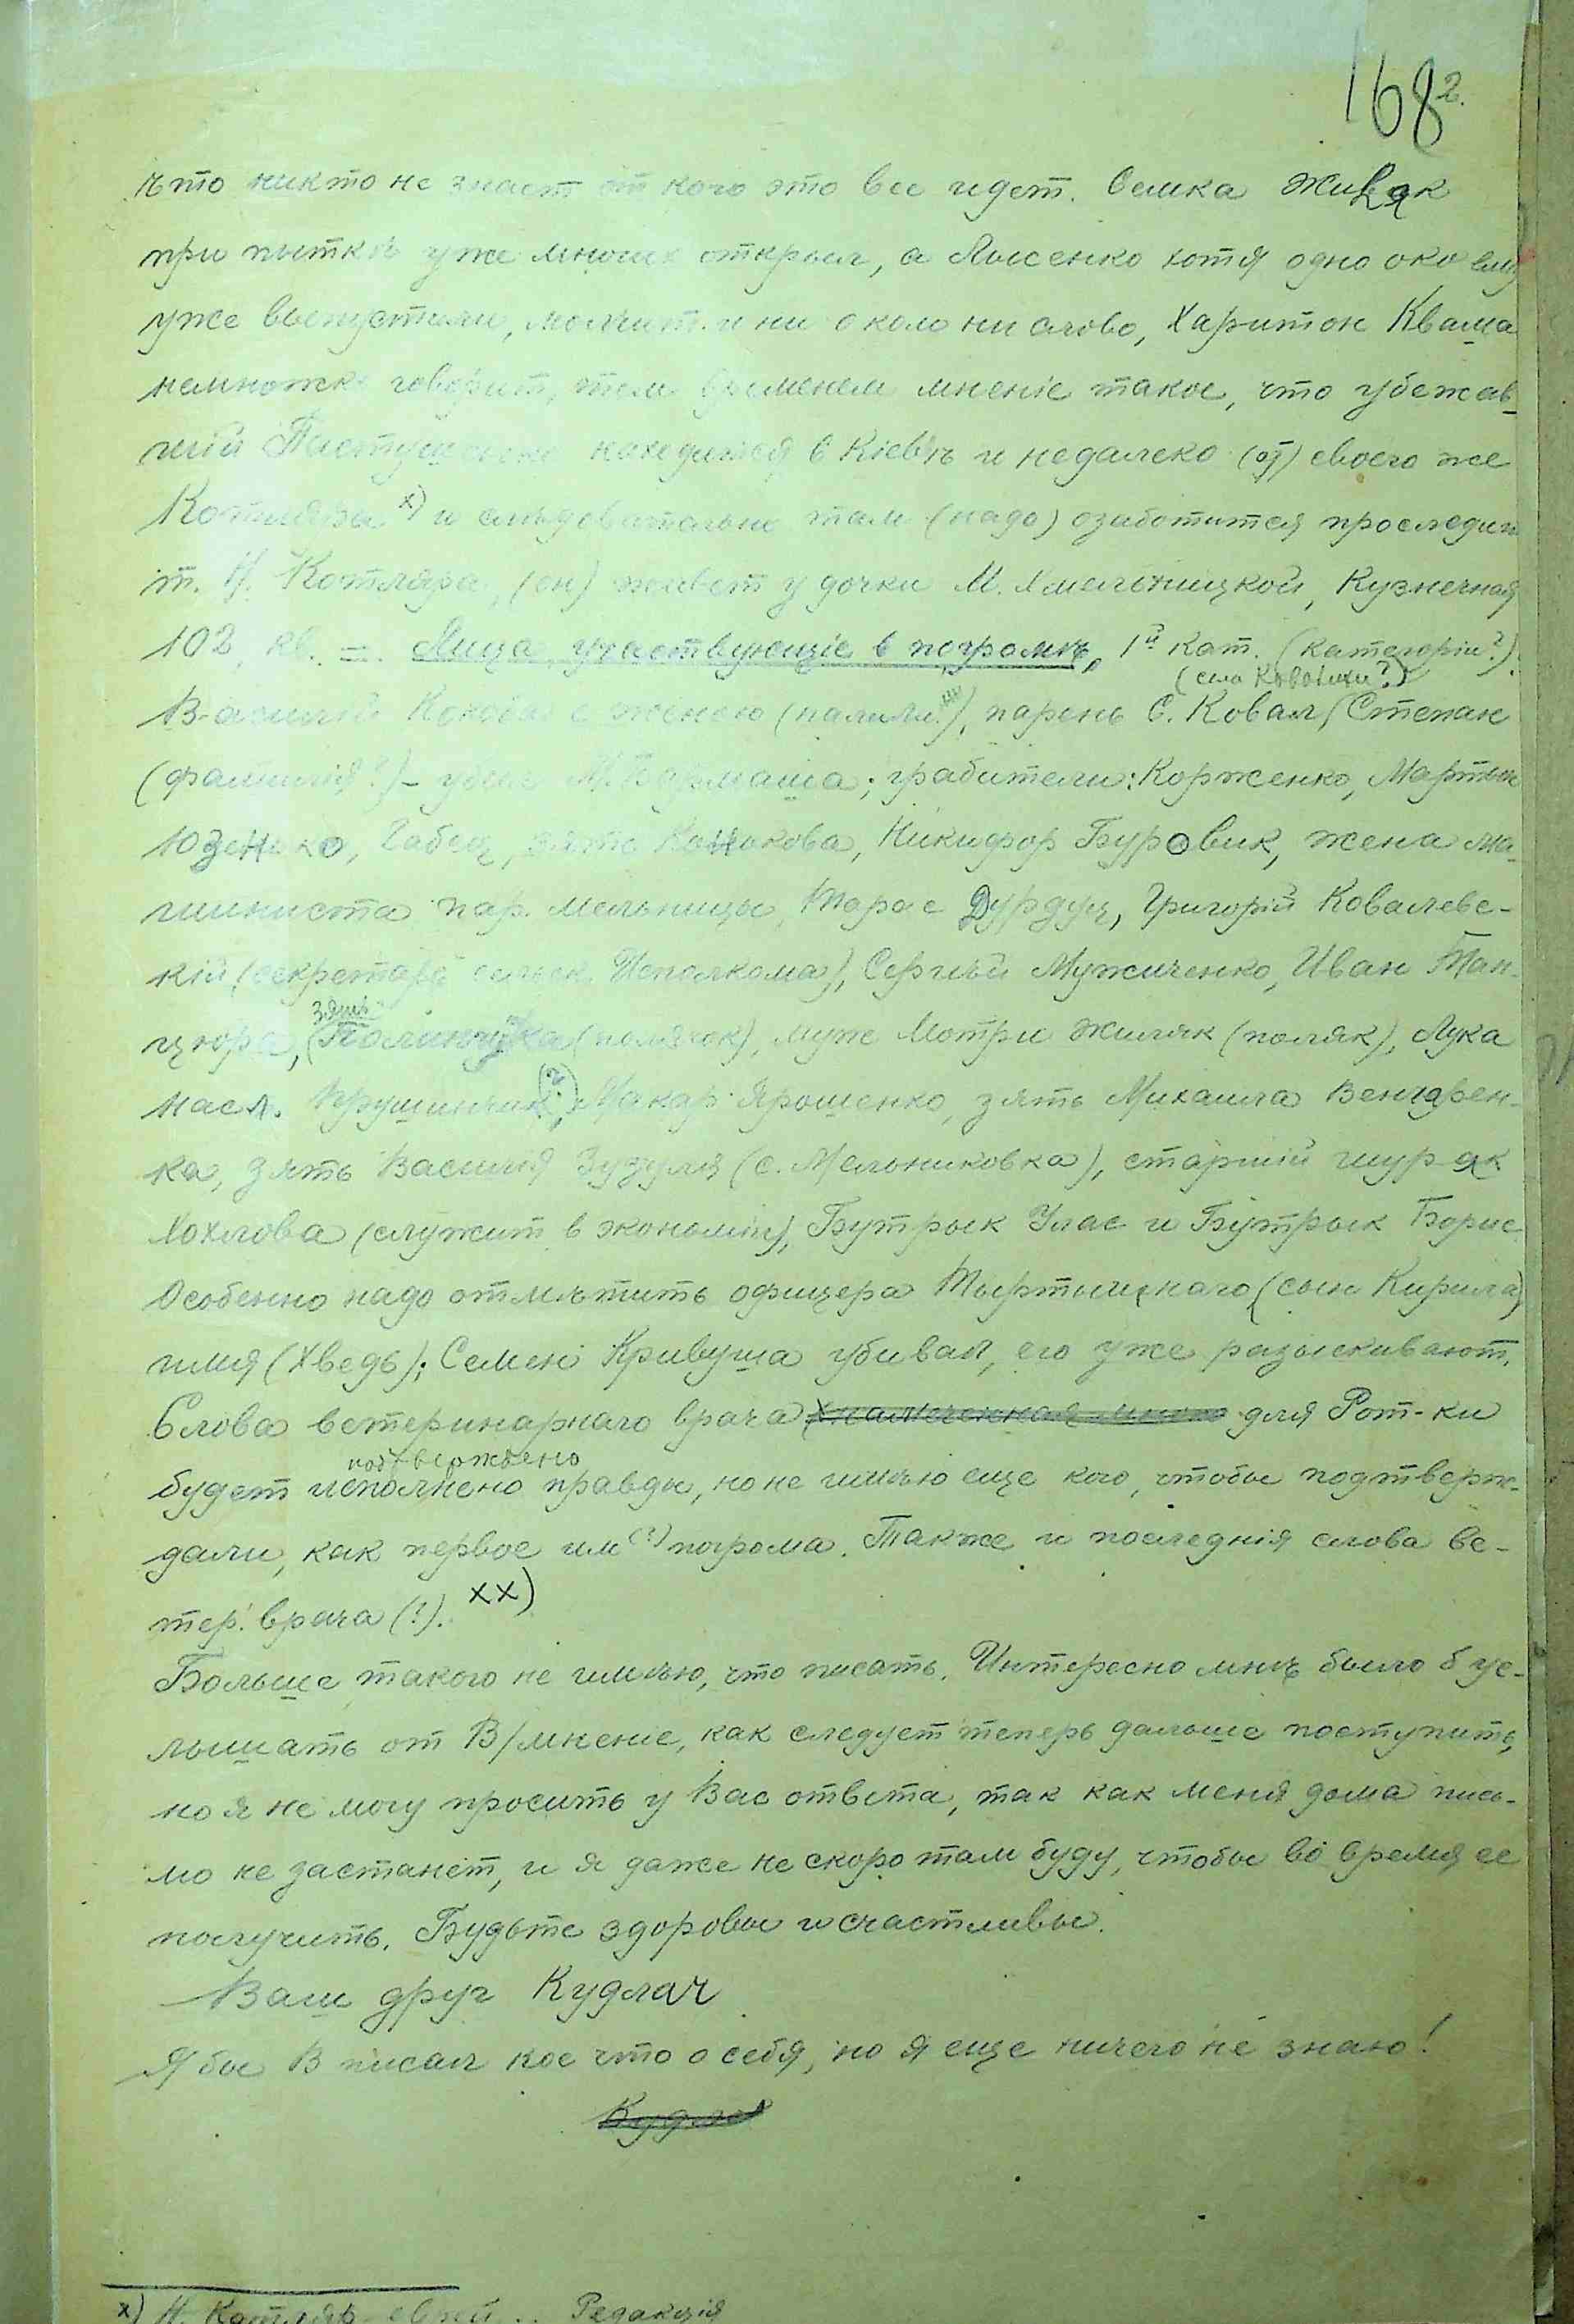 168
2.
что никто не знает от кого это все идет. Семка Живяк
при пыткѣ уже многих открыл, а Лысенко хотя одно око ему
уже выпустили, молчит и ни около ни слово, Харитон Кваша
немножко говорит, тем временем мненіе такое, что убежав-
шій Пастушенко находится в Кіевѣ и недалеко (от) своего же
Котляра x) и слѣдовательно там (надо) озаботится проследит
т. Н. Котляра, (он) живет у дочки М. Хмельницкой, Кузнечная
102, кв. =. Лица участвующіе в погромѣ, 1й кат. (категоріи?).
(села Ковалихи?)
Василій с женою (палили), парень С. Ковал, Степан
(фамилія?) – убил М. ; грабители: Корженко, Мартын
Юзенко, зять Никифор Буровик, жена ма-
шиниста пар. мельницы, Тарас Дурдуц, Григорій Ковалевс-
кій (секретарь сельск. Исполкома), Сергѣй Мужиченко, Иван Тан-
зять
цюра, (полячок), муж Мотри Жиляк (поляк), Лука
насл. (?), Макар Ярошенко, зять Михаила Венгерен-
ка, зять Василія Зузуля (с. Мельниковка), старшій шуряк
Хохлова (служит в экономіи), Бутрык Улас и Бутрык Борис.
Особенно надо отмѣтить офицера (сын Кирила)
имя (Хведь); Семен Кривуша убивал, его уже разыскивают.
Слова ветеринарнаго врача для Рот-ки
подтверждено
будет исполнено правды, но не имѣю еще кого, чтобы подтверж-
дали, как первое им (?) погрома. Также и последнія слова ве-
тер. врача (?). xx)
Больше такого не имѣю, что писать. Интересно мнѣ было б ус-
лышать от В/мненіе, как следует теперь дальше поступить,
но я не могу просить у Вас ответа, так как меня дома пись-
мо не застанет, и я даже не скоро там буду, чтобы во время ее
получить. Будьте здоровы и счастливы.
Ваш друг Кудлач
Я бы В писал кое что о себя, но я еще ничего не знаю!
Кудла
x) Н. Котляр – еврей. Редакція